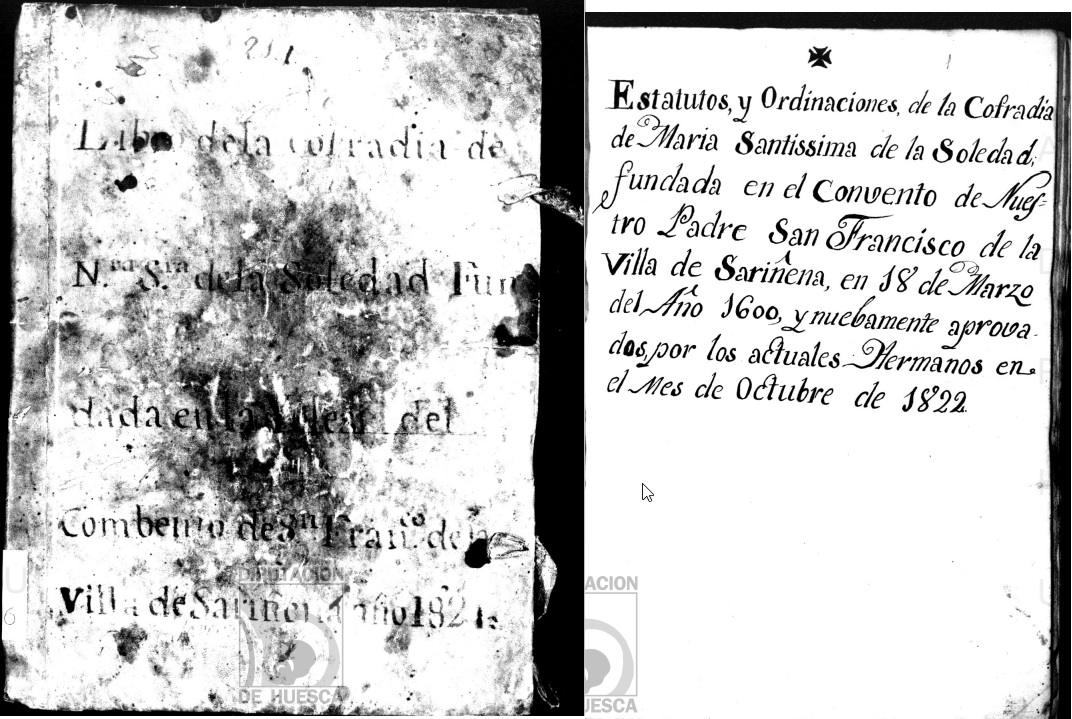 211
Libro dela cofradia de
N.ra S.ra dela Soledad Fun
dada en la del
Combento de Sn Franco. de la
Villa de Sariñena año 1821.
DIPUTACION
DE HUESCA
Estatutos, y Ordinaciones, de la Cofradia
de Maria Santissima de la Soledad,
fundada en el Convento de Nues-
tro Padre San Francisco de la
Villa de Sariñena, en 18 de Marzo
del Año 1600, y nuebamente aprova-
dos, por los actuales Hermanos en
el Mes de Octubre de 1822.
ACION
UESCA